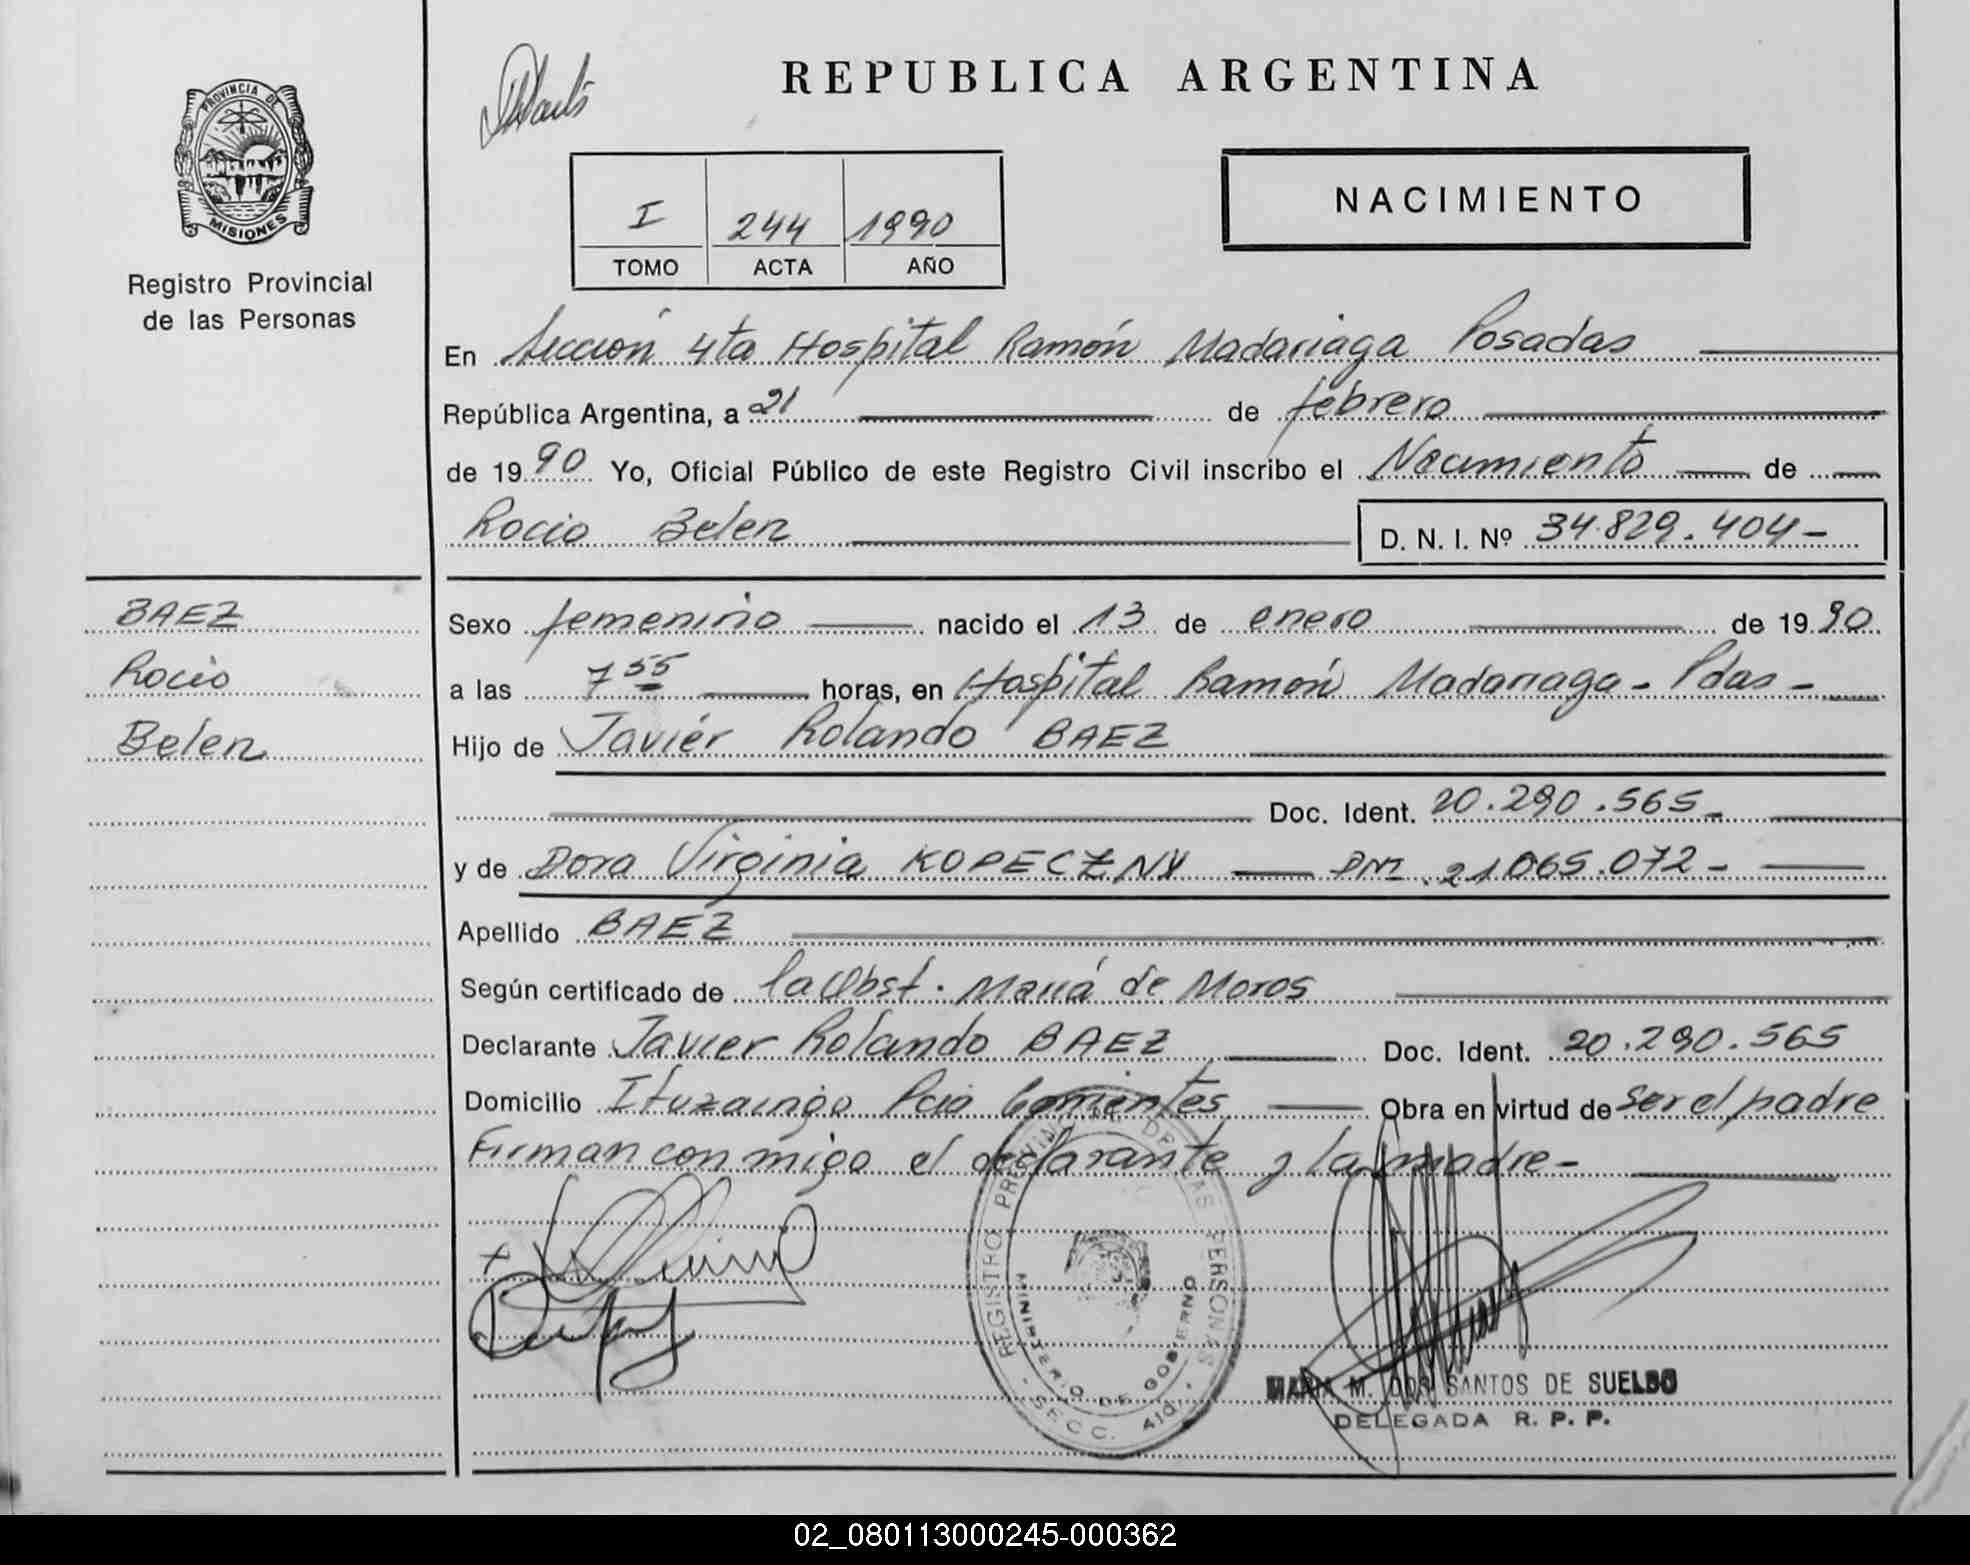 REPUBLICA ARGENTINA
PROVINCIA DE
MISIONES
Registro Provincial
de las Personas
I 244 1990
TOMO ACTA AÑO
NACIMIENTO
En Sección 4ta Hospital Ramón Madariaga Posadas
República Argentina, a 21 de febrero
de 1990 Yo, Oficial Público de este Registro Civil inscribo el Nacimiento de
Rocio Belen D. N. I. Nº 34.829.404-
BAEZ
Rocio
Belen
Sexo femenino nacido el 13 de enero de 1990
a las 7 55 horas, en Hospital Ramón Madariaga - Pdas -
Hijo de Javiér Rolando BAEZ
Doc. Ident. 20.290.565-
y de Dora Virginia KOPECZNY DNI 21.065.072-
Apellido BAEZ
Según certificado de la Obst. María de Moros
Declarante Javier Rolando BAEZ Doc. Ident. 20.290.565
Domicilio Ituzaingo Pcia Corrientes Obra en virtud de ser el padre
Firman con migo el declarante y la madre-
REGISTRO PROVINCIAL DE LAS PERSONAS
MINISTERIO DE GOBIERNO
SECC. 4ta.
MARIA M. DOS SANTOS DE SUELDO
DELEGADA R. P. P.
02_080113000245-000362